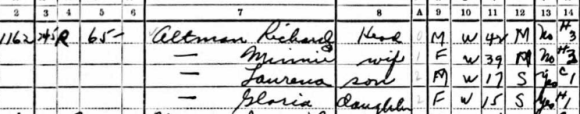 2 3 4 5 6 7 8 A 9 10 11 12 13 14
1162 R 65- Altman Richard Head 0 M W 42 M No H3
— Minnie wife 1 F W 39 M No H3
— Laurena son 2 M W 17 S Yes C1
— Gloria Daughter 2 F W 15 S Yes H1